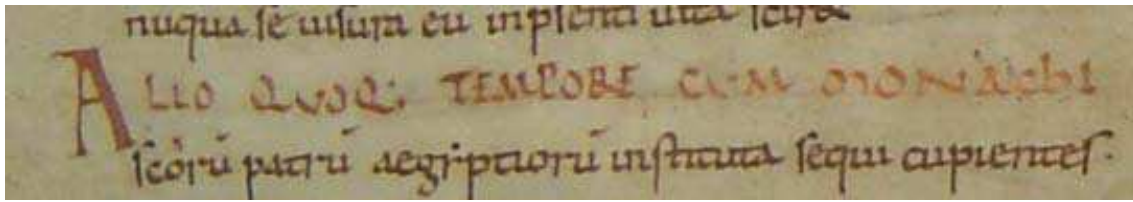 nuqua se uisura eu inpsenti uita sciret
ALIO QUOQ; TEMPORE CUM MONAChI
scorū patrū aegiptiorū instituta sequi cupientes.